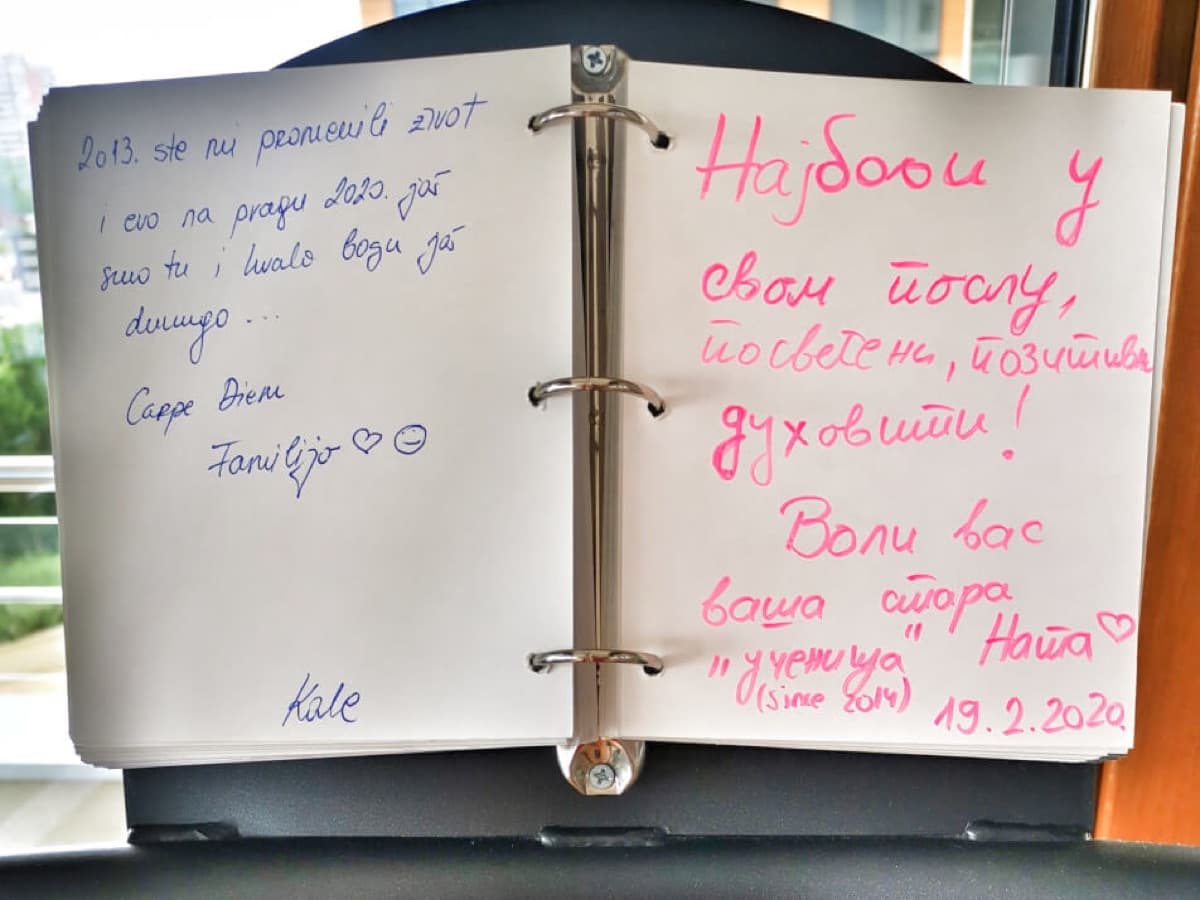 2013. ste mi promenili život
i evo na pragu 2020. još
smo tu i hvala bogu još
dugo ...
Carpe Diem
Familijo ♡ ☺
Kale
Најбољи у
свом послу,
посвећени, позитивни
духовити!
Воли вас
ваша стара
„ученица" Наташа ♡
(since 2014) 19.2.2020.